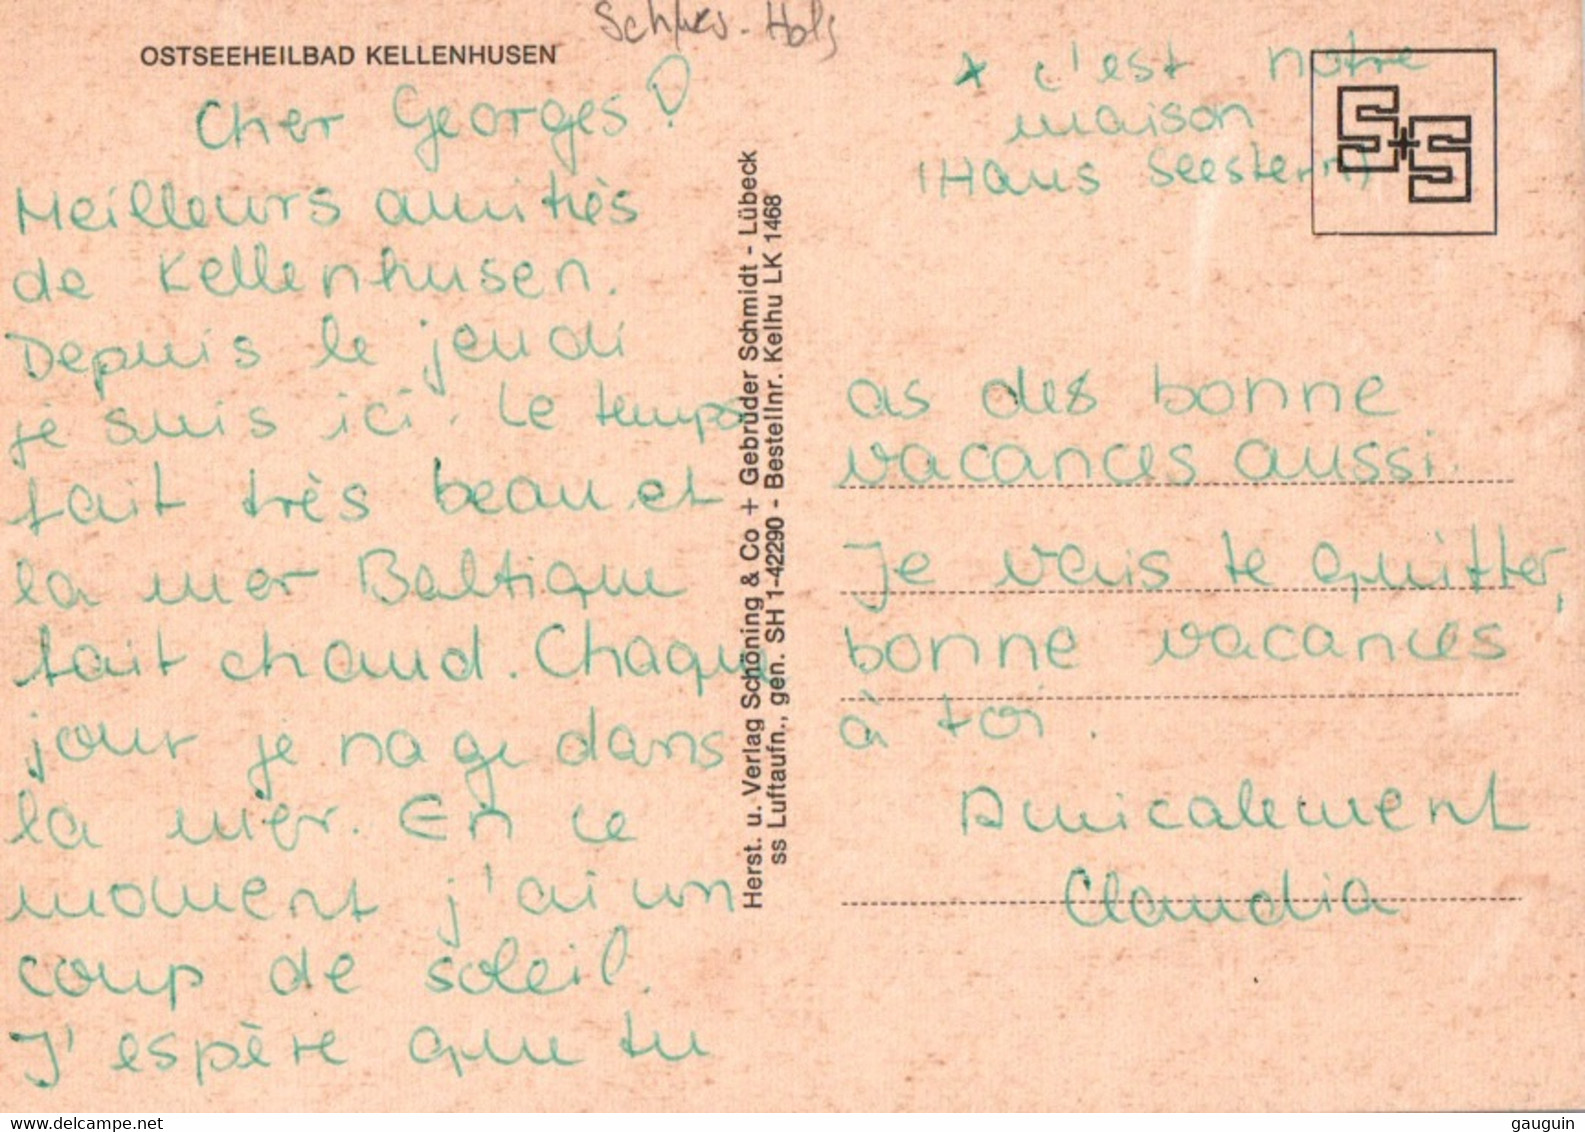 Schles. - Hols
OSTSEEHEILBAD KELLENHUSEN
Cher Georges!
Meilleurs amitiés
de Kellenhusen.
Depuis le jeudi
je suis ici. Le temps
fait très beau et
la mer Baltique
fait chaud. Chaque
jour je nage dans
la mer. En ce
moment j'ai un
coup de soleil.
J'espère que tu
Herst. u. Verlag Schöning & Co + Gebrüder Schmidt - Lübeck
ss Luftaufn., gen. SH 1-42290 - Bestellnr. Kelhu LK 1468
x c'est notre
maison
(Haus Seestern)
S+S
as des bonne
vacances aussi.
Je vais te quitter,
bonne vacances
à toi.
Amicalement
Claudia
delcampe.net
gauguin__